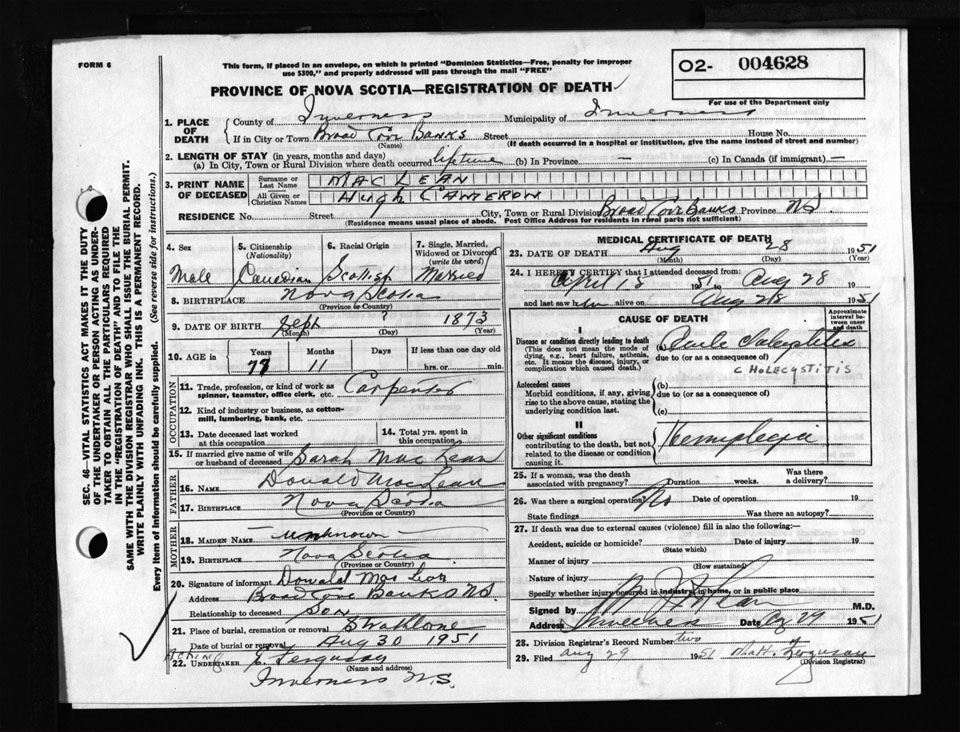 FORM 6
This form, if placed in an envelope, on which is printed "Dominion Statistics—Free, penalty for improper
use $300," and properly addressed will pass through the mail "FREE"
O2- 004628
For use of the Department only
PROVINCE OF NOVA SCOTIA—REGISTRATION OF DEATH
1. PLACE OF DEATH
County of Inverness Municipality of Inverness
If in City or Town Broad Cove Banks Street House No.
(Name) (If death occurred in a hospital or institution, give the name instead of street and number)
2. LENGTH OF STAY (in years, months and days)
(a) In City, Town or Rural Division where death occurred lifetime (b) In Province — (c) In Canada (if immigrant) —
3. PRINT NAME OF DECEASED
Surname or Last Name MAC LEAN
All Given or Christian Names Hugh CAMERON
RESIDENCE No. Street City, Town or Rural Division Broad Cove Banks Province N.S.
(Residence means usual place of abode. Post Office Address for residents in rural parts not sufficient)
SEC. 46—VITAL STATISTICS ACT MAKES IT THE DUTY
OF THE UNDERTAKER OR PERSON ACTING AS UNDER-
TAKER TO OBTAIN ALL THE PARTICULARS REQUIRED
IN THE "REGISTRATION OF DEATH" AND TO FILE THE
SAME WITH THE DIVISION REGISTRAR WHO SHALL ISSUE THE BURIAL PERMIT.
WRITE PLAINLY WITH UNFADING INK. THIS IS A PERMANENT RECORD.
Every item of Information should be carefully supplied. (See reverse side for instructions.)
4. Sex Male
5. Citizenship (Nationality) Canadian
6. Racial Origin Scottish
7. Single, Married, Widowed or Divorced (write the word) Married
8. BIRTHPLACE Nova Scotia
(Province or Country)
9. DATE OF BIRTH Sept ? 1873
(Month) (Day) (Year)
10. AGE in Years 77 Months 11 Days If less than one day hrs. or min.
OCCUPATION
11. Trade, profession, or kind of work as spinner, teamster, office clerk, etc. Carpenter
12. Kind of industry or business, as cotton-mill, lumbering, bank, etc.
13. Date deceased last worked at this occupation
14. Total yrs. spent in this occupation
15. If married give name of wife or husband of deceased Sarah Mac Lean
FATHER
16. NAME Donald MacLean
17. BIRTHPLACE Nova Scotia
(Province or Country)
MOTHER
18. MAIDEN NAME unknown
19. BIRTHPLACE Nova Scotia
(Province or Country)
20. Signature of informant Donald Mac Lean
Address Broad Cove Banks N.S.
Relationship to deceased Son
21. Place of burial, cremation or removal Strathlorne
Date of burial or removal Aug 30 1951
Acting
22. UNDERTAKER E. Ferguson
(Name and address)
Inverness N.S.
MEDICAL CERTIFICATE OF DEATH
23. DATE OF DEATH Aug 28 1951
(Month) (Day) (Year)
24. I HEREBY CERTIFY that I attended deceased from:
April 18 1951 to Aug 28
and last saw him alive on Aug 28 1951
CAUSE OF DEATH
Approximate interval between onset and death
I
Disease or condition directly leading to death
(This does not mean the mode of dying, e.g., heart failure, asthenia, etc. It means the disease, injury, or complication which caused death.)
(a) Acute
due to (or as a consequence of)
CHOLECYSTITIS
Antecedent causes
Morbid conditions, if any, giving rise to the above cause, stating the underlying condition last.
(b)
due to (or as a consequence of)
(c)
II
Other significant conditions
contributing to the death, but not related to the disease or condition causing it.
Hemiplegia
25. If a woman, was the death associated with pregnancy? Duration weeks. Was there a delivery?
26. Was there a surgical operation? No Date of operation 19
State findings Was there an autopsy?
27. If death was due to external causes (violence) fill in also the following:—
Accident, suicide or homicide? Date of injury 19
(State which)
Manner of injury
(How sustained)
Nature of injury
Specify whether injury occurred in industry, in home, or in public place
Signed by M.D.
Address Inverness Date Aug 29 1951
28. Division Registrar's Record Number two
29. Filed Aug 29 1951 Matt. Ferguson
(Division Registrar)